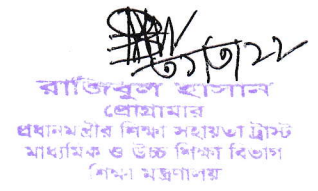 রাজিবুল হাসান
প্রোগ্রামার
প্রধানমন্ত্রীর শিক্ষা সহায়তা ট্রাস্ট
মাধ্যমিক ও উচ্চ শিক্ষা বিভাগ
শিক্ষা মন্ত্রণালয়